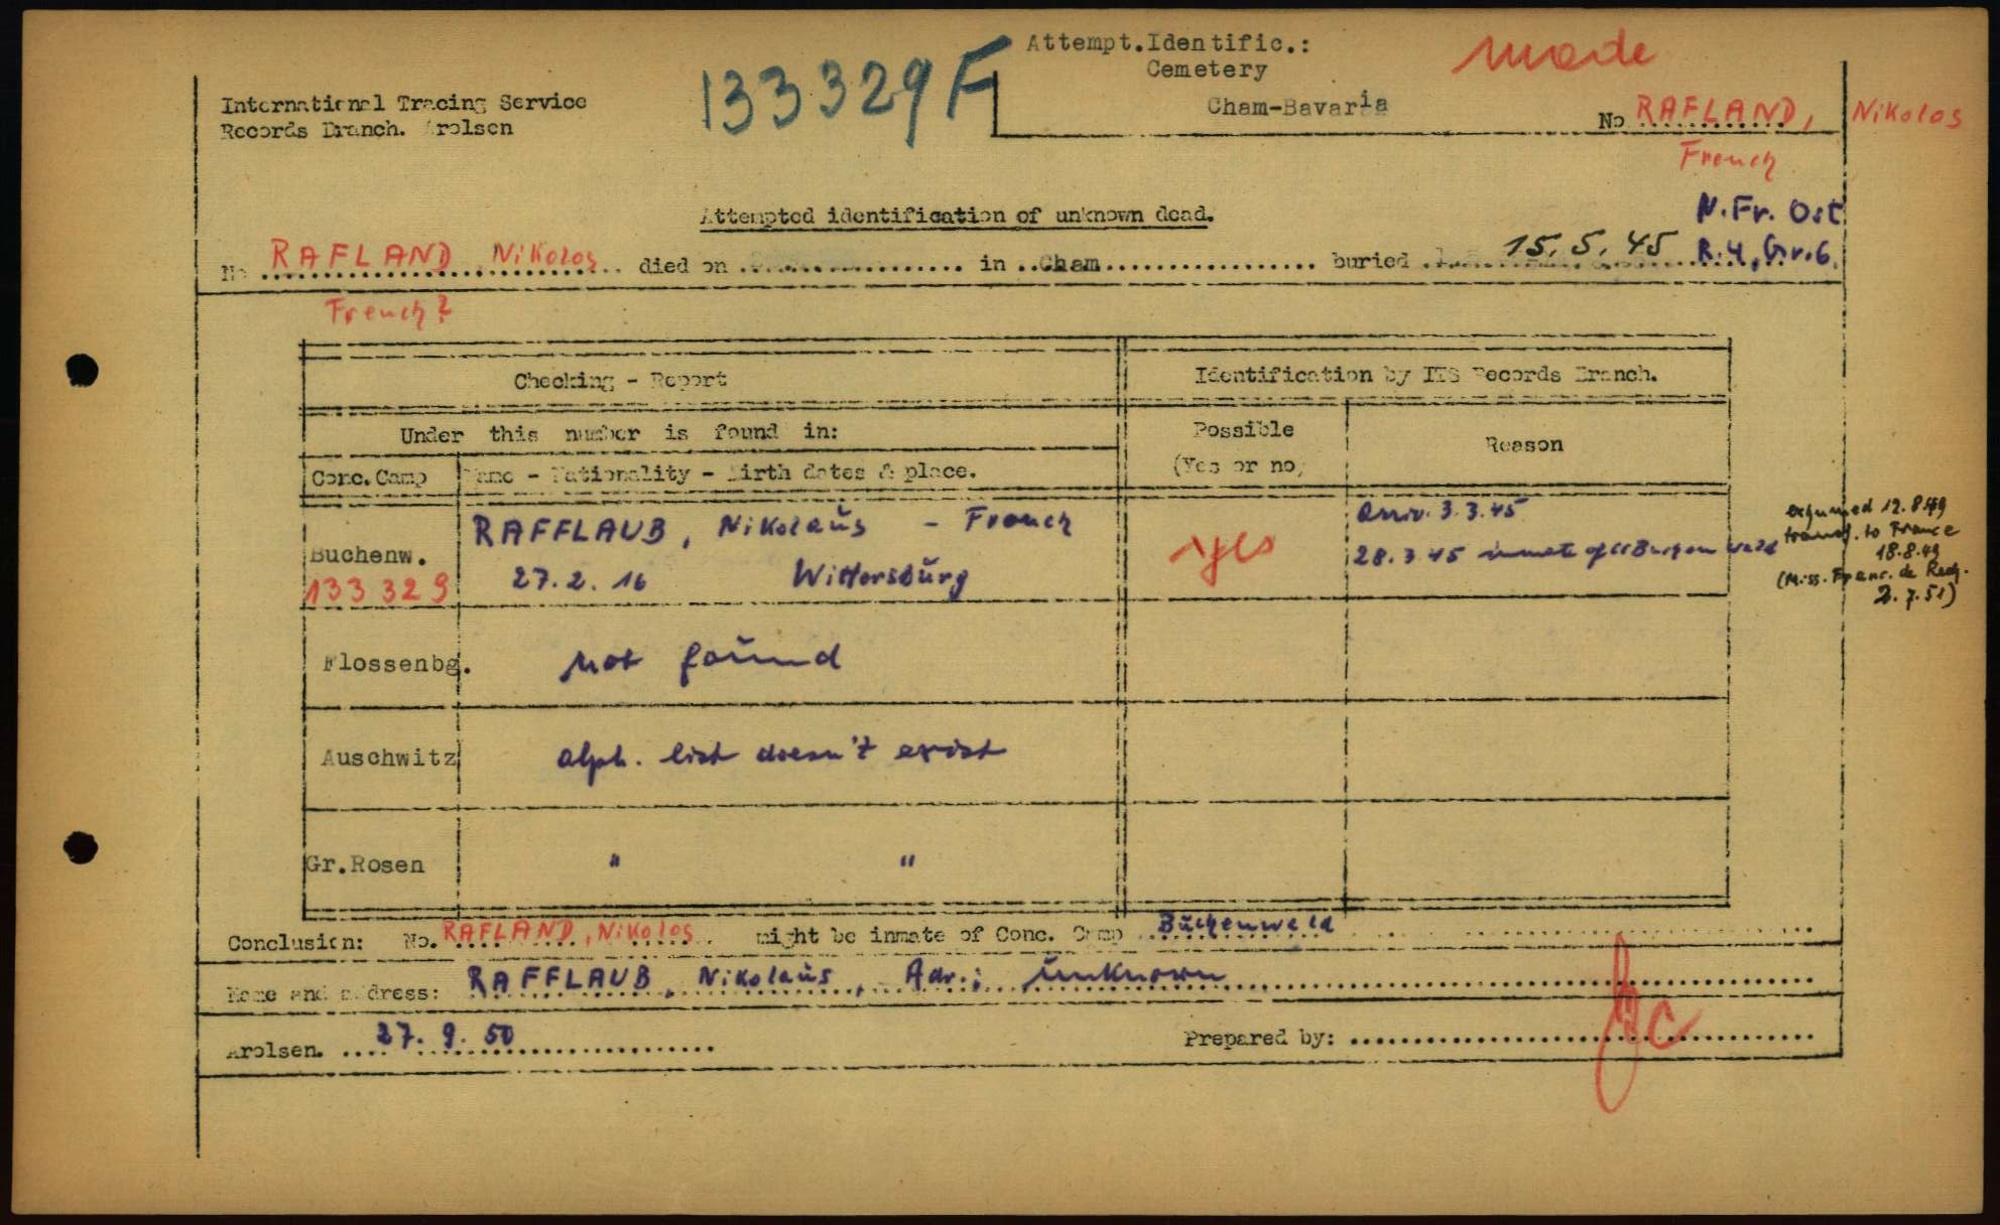 Attempt.Identific.:
made
Cemetery
133329 F
Cham-Bavaria
International Tracing Service
Records Branch. Arolsen
No RAFLAND, Nikolos
French
Attempted identification of unknown dead.
N.Fr. Ost
No RAFLAND Nikolos died on in Cham buried 15.5.45 R.4, Gr.6
French?
Checking - Report
Identification by ITS Records Branch.
Under this number is found in:
Possible
(Yes or no)
Reason
Conc.Camp
Name - Nationality - Birth dates & place.
Buchenw.
133329
RAFFLAUB, Nikolaŭs - French
27.2.16 Wittersbŭrg
yes
arriv. 3.3.45
28.3.45 inmate of cc Buchenwald
exhumed 12.8.49
transf. to France
18.8.49
(Miss. Franc. de Rech.
2.7.51)
Flossenbg.
not foŭnd
Auschwitz
alph. list doesn't exist
Gr.Rosen
" "
Conclusion: No. RAFLAND, Nikolos might be inmate of Conc. Camp Bŭchenwald
Name and address: RAFFLAUB, Nikolaŭs, Adr.: ŭnknown
Arolsen. 27.9.50
Prepared by: